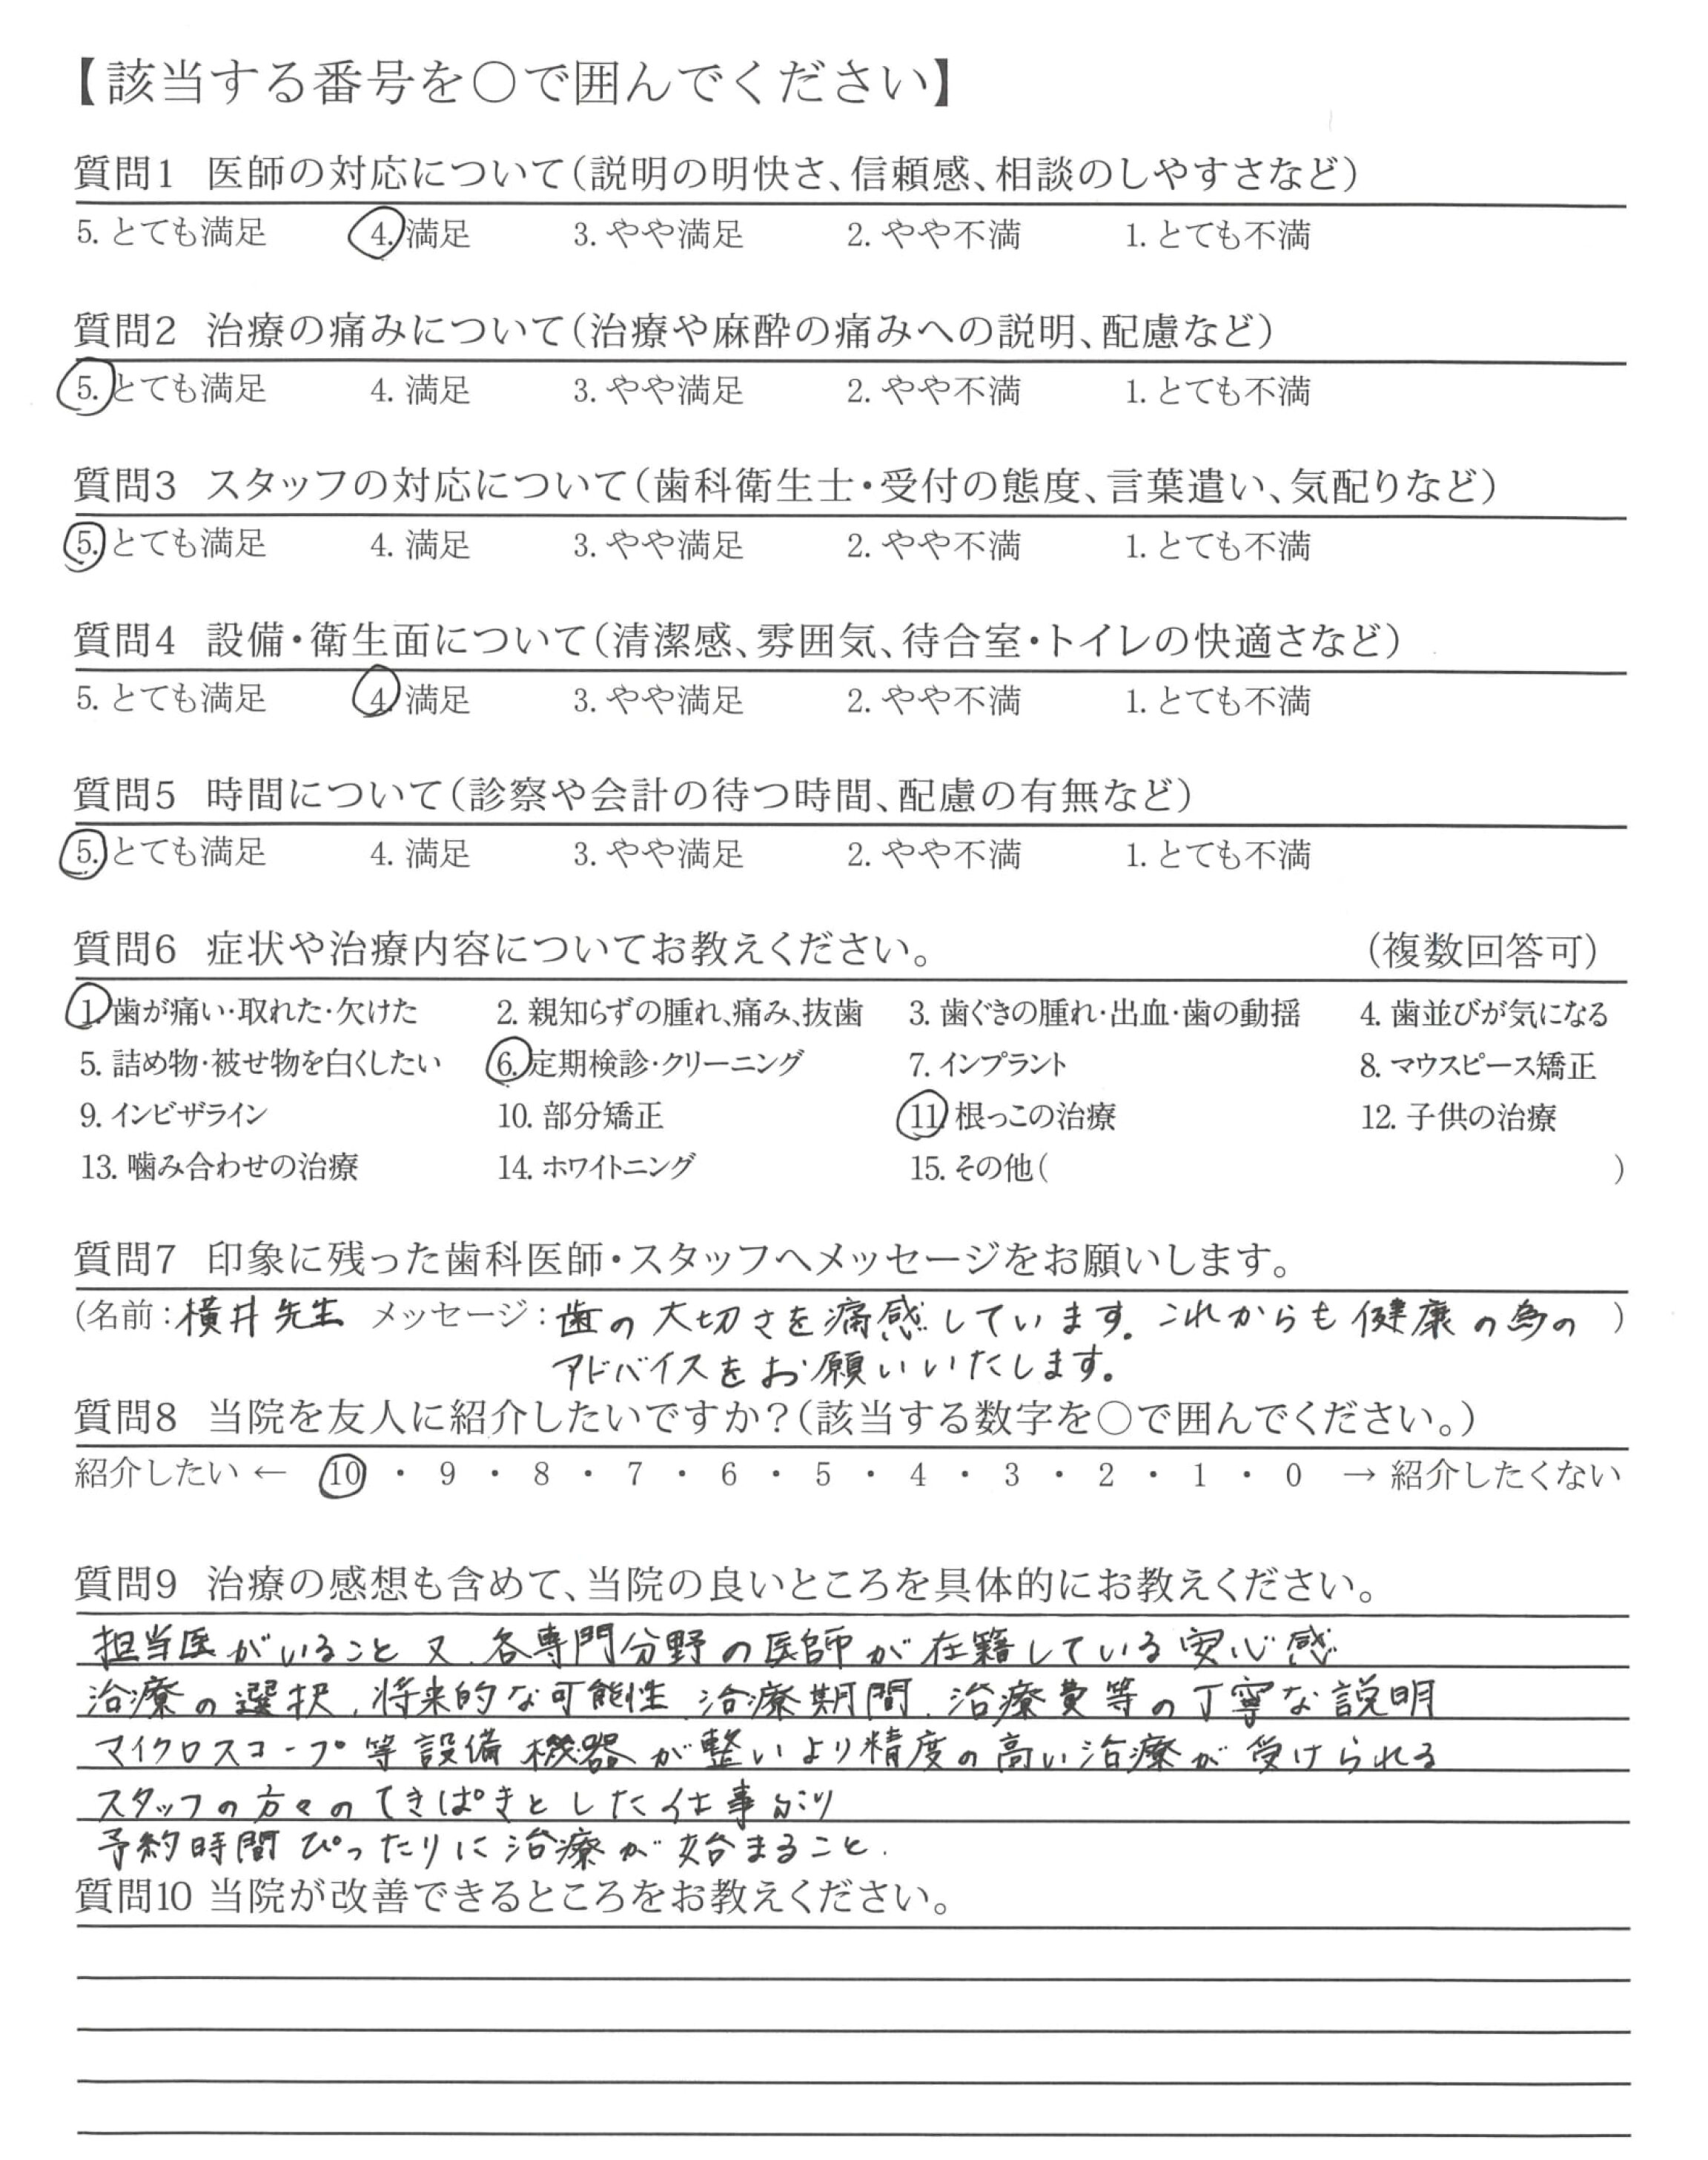 【該当する番号を○で囲んでください】
質問1 医師の対応について(説明の明快さ、信頼感、相談のしやすさなど)
5. とても満足 4. 満足 3. やや満足 2. やや不満 1. とても不満
質問2 治療の痛みについて(治療や麻酔の痛みへの説明、配慮など)
5. とても満足 4. 満足 3. やや満足 2. やや不満 1. とても不満
質問3 スタッフの対応について(歯科衛生士・受付の態度、言葉遣い、気配りなど)
5. とても満足 4. 満足 3. やや満足 2. やや不満 1. とても不満
質問4 設備・衛生面について(清潔感、雰囲気、待合室・トイレの快適さなど)
5. とても満足 4. 満足 3. やや満足 2. やや不満 1. とても不満
質問5 時間について(診察や会計の待つ時間、配慮の有無など)
5. とても満足 4. 満足 3. やや満足 2. やや不満 1. とても不満
質問6 症状や治療内容についてお教えください。 (複数回答可)
1. 歯が痛い・取れた・欠けた 2. 親知らずの腫れ、痛み、抜歯 3. 歯ぐきの腫れ・出血・歯の動揺 4. 歯並びが気になる
5. 詰め物・被せ物を白くしたい 6. 定期検診・クリーニング 7. インプラント 8. マウスピース矯正
9. インビザライン 10. 部分矯正 11. 根っこの治療 12. 子供の治療
13. 噛み合わせの治療 14. ホワイトニング 15. その他( )
質問7 印象に残った歯科医師・スタッフへメッセージをお願いします。
(名前:横井先生 メッセージ:歯の大切さを痛感しています。これからも健康の為の )
アドバイスをお願いいたします。
質問8 当院を友人に紹介したいですか?(該当する数字を○で囲んでください。)
紹介したい ← 10 ・ 9 ・ 8 ・ 7 ・ 6 ・ 5 ・ 4 ・ 3 ・ 2 ・ 1 ・ 0 → 紹介したくない
質問9 治療の感想も含めて、当院の良いところを具体的にお教えください。
担当医がいること 又、各専門分野の医師が在籍している安心感
治療の選択、将来的な可能性、治療期間、治療費等の丁寧な説明
マイクロスコープ等設備機器が整いより精度の高い治療が受けられる
スタッフの方々のてきぱきとした仕事ぶり
予約時間ぴったりに治療が始まること.
質問10 当院が改善できるところをお教えください。